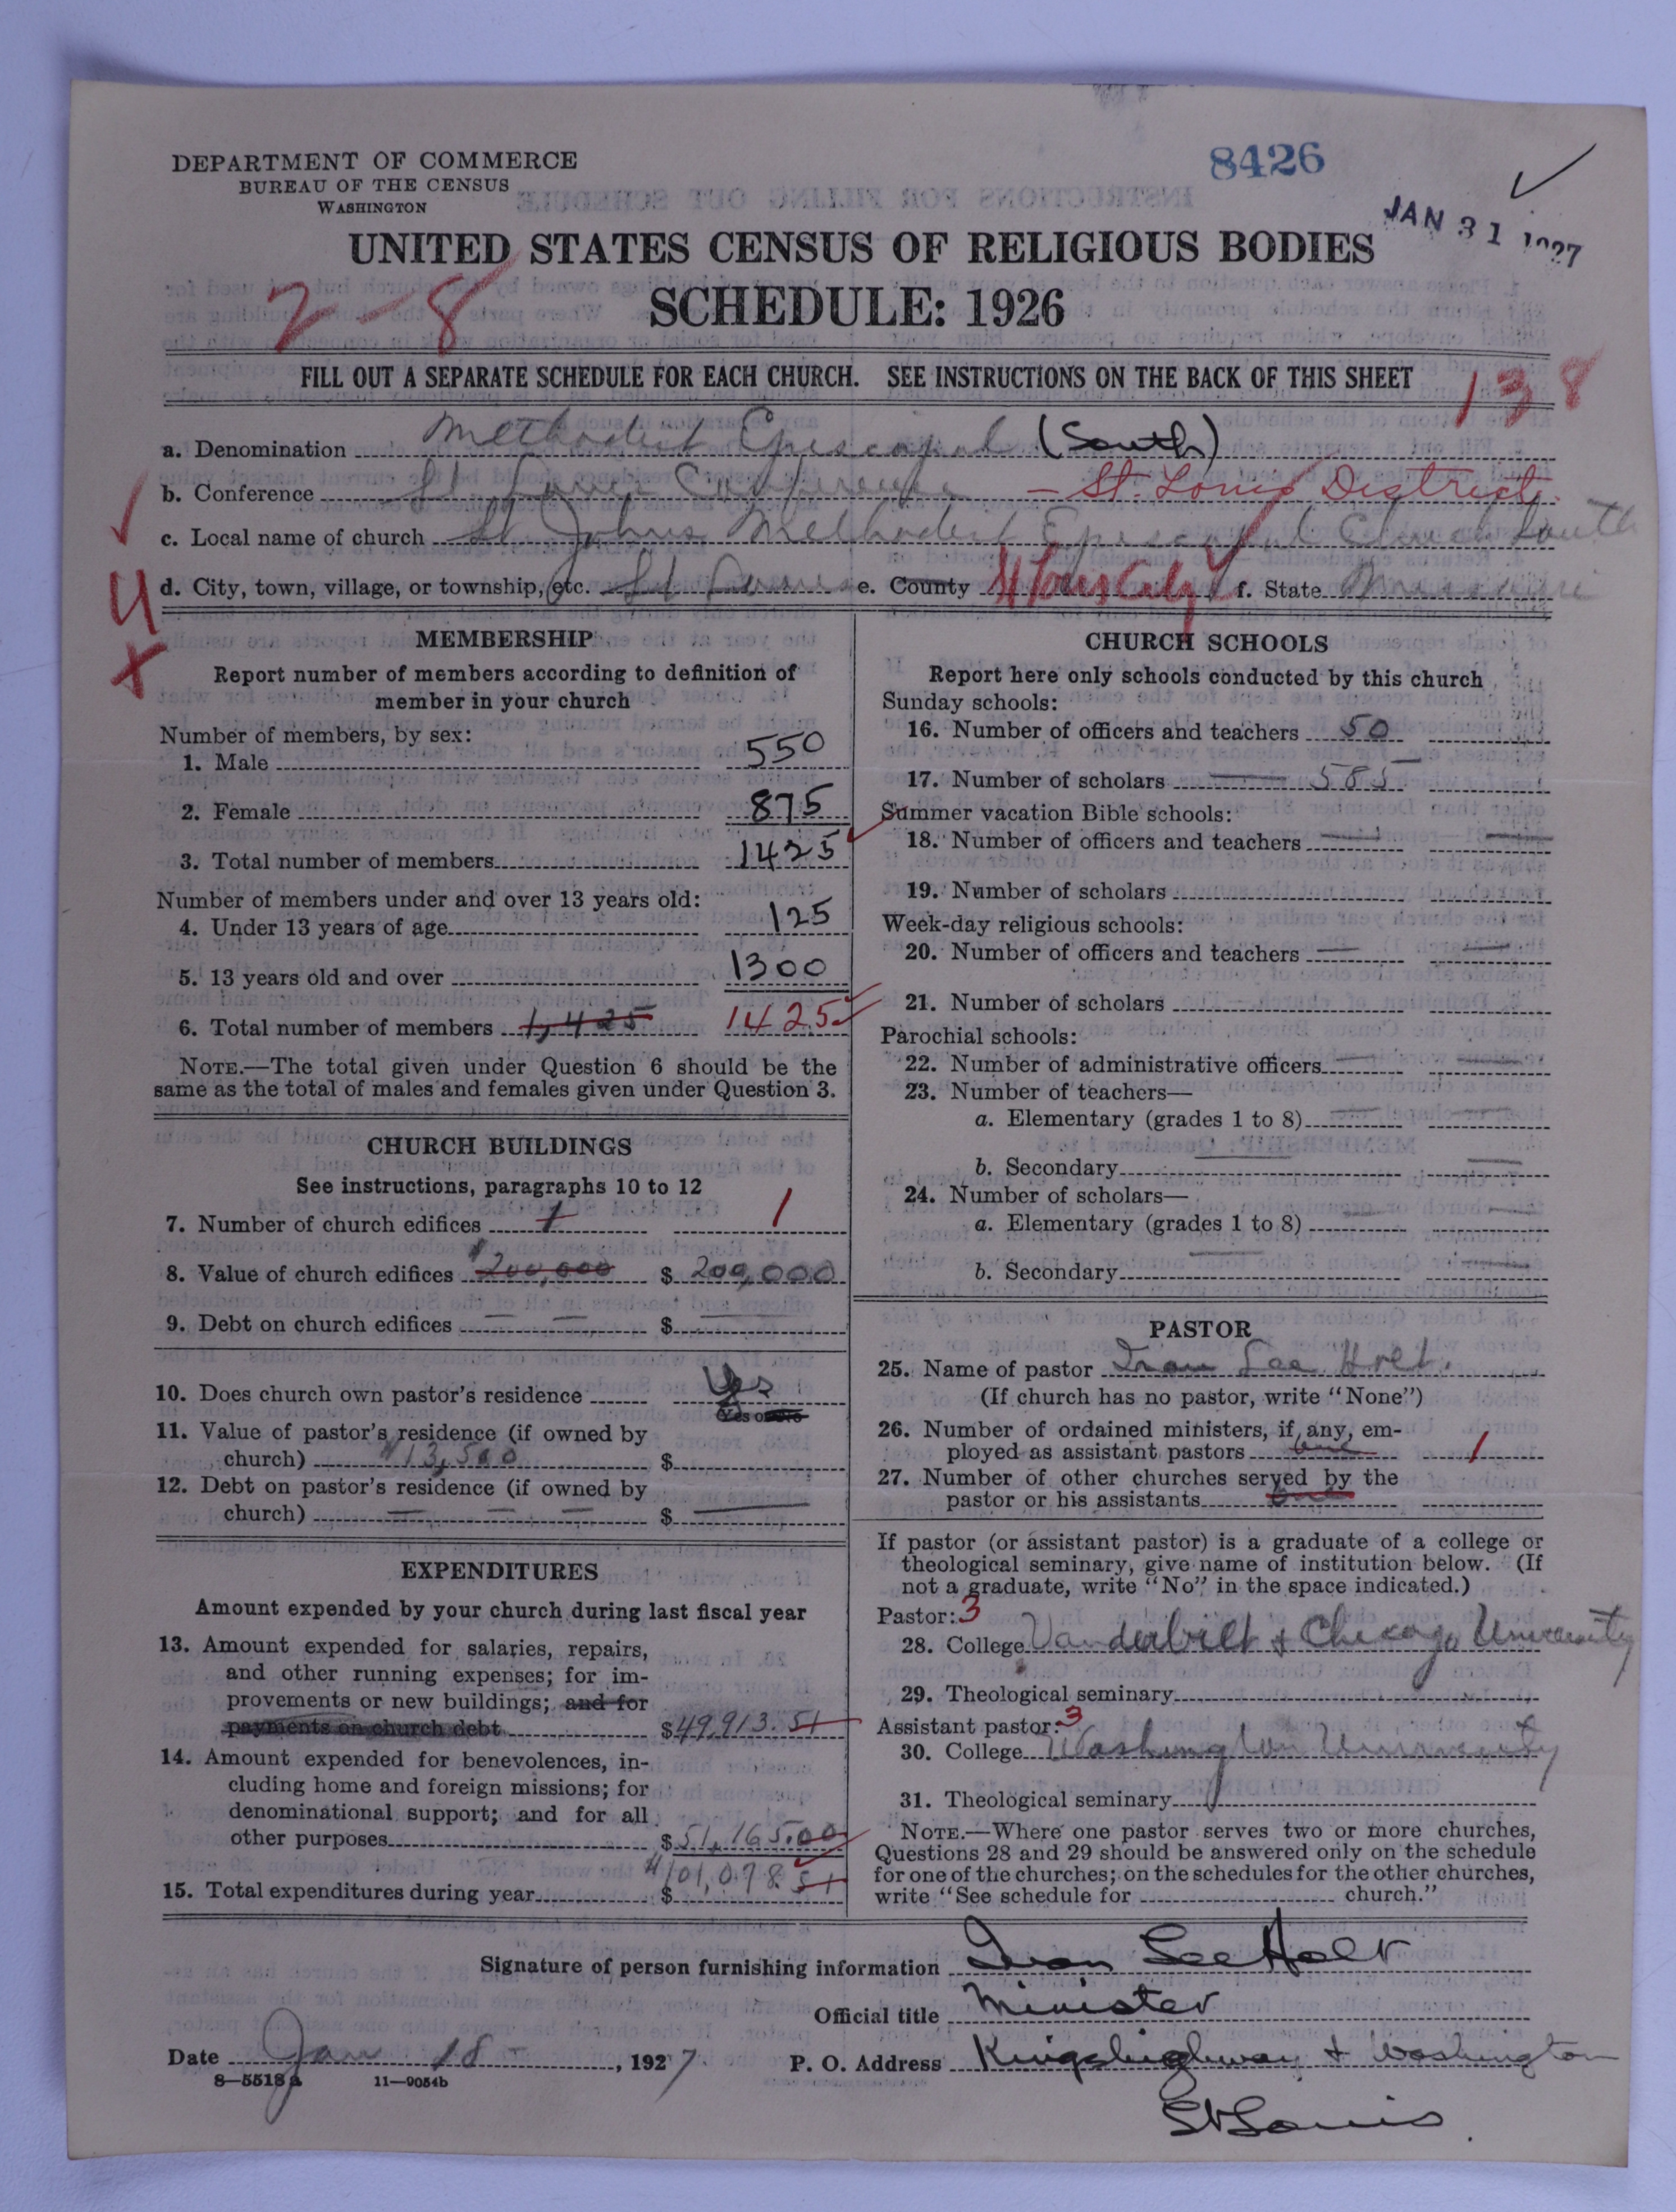 DEPARTMENT OF COMMERCE
BUREAU OF THE CENSUS
WASHINGTON
8426
JAN 31 1927
UNITED STATES CENSUS OF RELIGIOUS BODIES
SCHEDULE: 1926
2-8
FILL OUT A SEPARATE SCHEDULE FOR EACH CHURCH. SEE INSTRUCTIONS ON THE BACK OF THIS SHEET
138
a. Denomination Methodist Episcopal (South)
b. Conference St. Louis Conference - St. Louis District
c. Local name of church St Johns Methodist Episcopal Church South
4
d. City, town, village, or township, etc. St Louis e. County St Louis City f. State Missouri
X
MEMBERSHIP
Report number of members according to definition of
member in your church
Number of members, by sex:
1. Male 550
2. Female 875
3. Total number of members 1425
Number of members under and over 13 years old:
4. Under 13 years of age 125
5. 13 years old and over 1300
6. Total number of members 1,425 1425
NOTE.—The total given under Question 6 should be the
same as the total of males and females given under Question 3.
CHURCH BUILDINGS
See instructions, paragraphs 10 to 12
7. Number of church edifices 1 1
8. Value of church edifices $200,000 $ 200,000
9. Debt on church edifices — — $ —
10. Does church own pastor's residence Yes
Yes or No
11. Value of pastor's residence (if owned by
church) $13,500 $
12. Debt on pastor's residence (if owned by
church) — — — $ —
EXPENDITURES
Amount expended by your church during last fiscal year
13. Amount expended for salaries, repairs,
and other running expenses; for im-
provements or new buildings; and for
payments on church debt $49,913.51
14. Amount expended for benevolences, in-
cluding home and foreign missions; for
denominational support; and for all
other purposes $51,165.00
15. Total expenditures during year $ $101,078.51
CHURCH SCHOOLS
Report here only schools conducted by this church
Sunday schools:
16. Number of officers and teachers 50
17. Number of scholars — 585
Summer vacation Bible schools:
18. Number of officers and teachers — —
19. Number of scholars
Week-day religious schools:
20. Number of officers and teachers — —
21. Number of scholars
Parochial schools:
22. Number of administrative officers — —
23. Number of teachers—
a. Elementary (grades 1 to 8) — —
b. Secondary — —
24. Number of scholars—
a. Elementary (grades 1 to 8) —
b. Secondary — —
PASTOR
25. Name of pastor Ivan Lee Holt.
(If church has no pastor, write "None")
26. Number of ordained ministers, if any, em-
ployed as assistant pastors one 1
27. Number of other churches served by the
pastor or his assistants
If pastor (or assistant pastor) is a graduate of a college or
theological seminary, give name of institution below. (If
not a graduate, write "No" in the space indicated.)
Pastor: 3
28. College Vanderbilt & Chicago University
29. Theological seminary
Assistant pastor: 3
30. College Washington University
31. Theological seminary
NOTE.—Where one pastor serves two or more churches,
Questions 28 and 29 should be answered only on the schedule
for one of the churches; on the schedules for the other churches,
write "See schedule for church."
Signature of person furnishing information Ivan Lee Holt
Official title Minister
Date Jan 18 - , 1927. P. O. Address Kingshighway & Washington
8—5518a 11—9054b
St Louis.